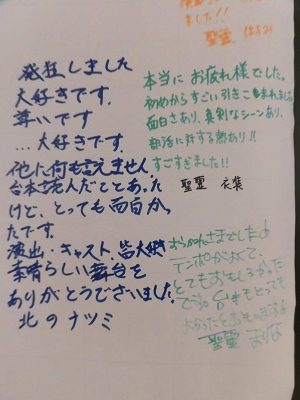 ました!!
聖霊 はるみ
発狂しました
大好きです。
尊いです
…大好きです。
他に何も言えません。
台本読んだことあった
けど、とっても面白かっ
たです。
演出、キャスト、皆大好き
素晴らしい舞台を
ありがとうございました。
北のナツミ
本当に お疲れ様でした。
初めからすごい引きこまれました。
面白さあり、真剣なシーンあり、
部活に対する熱あり!!
すごすぎました!!
聖霊 衣装
おつかれさまでしたよ
テンポがよくて、
とてもおもしろかった
です。台本もとっても
よかったとおもいますよ
聖霊 まな